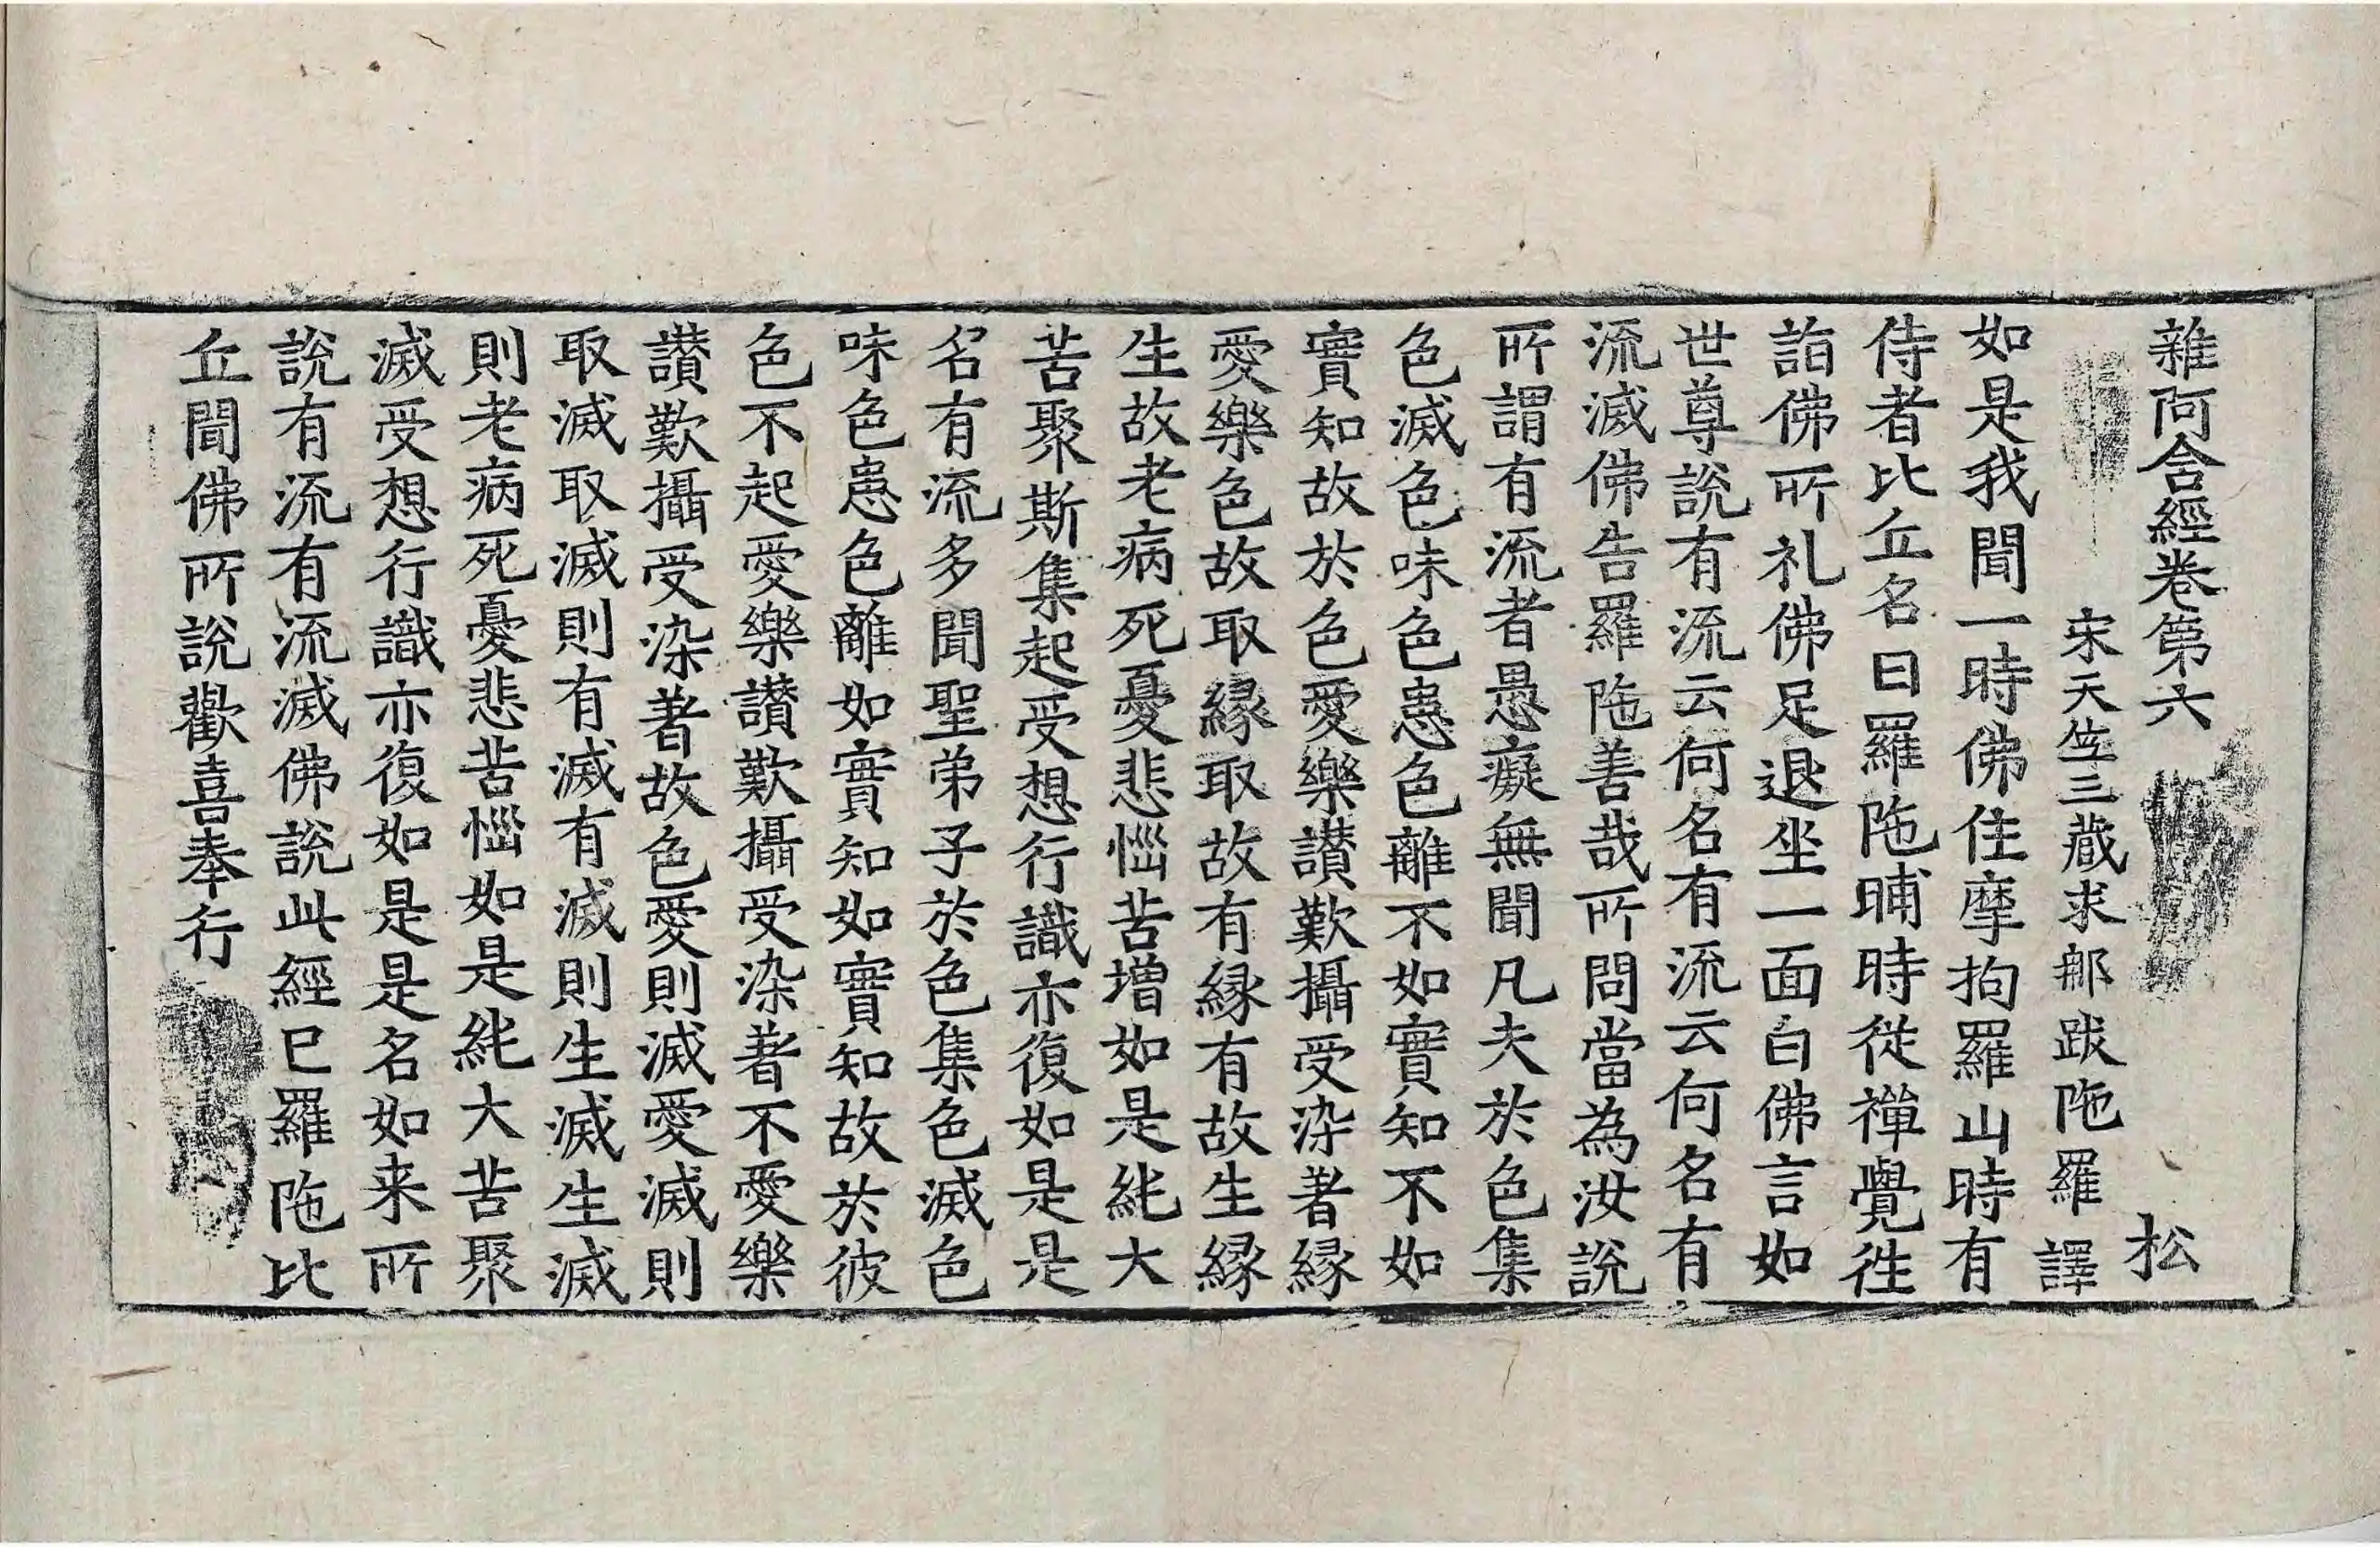 雜阿含經卷第六 松
宋天竺三藏求那跋陁羅 譯
如是我聞一時佛住摩拘羅山時有
侍者比丘名曰羅陁晡時從禪覺徃
詣佛所礼佛足退坐一面白佛言如
世尊說有流云何名有流云何名有
流滅佛告羅陁善哉所問當為汝說
所謂有流者愚癡無聞凡夫於色集
色滅色味色患色離不如實知不如
實知故於色愛樂讃歎攝受染著縁
愛樂色故取縁取故有縁有故生縁
生故老病死憂悲惱苦増如是純大
苦聚斯集起受想行識亦復如是是
名有流多聞聖弟子於色集色滅色
味色患色離如實知如實知故於彼
色不起愛樂讃歎攝受染著不愛樂
讃歎攝受染著故色愛則滅愛滅則
取滅取滅則有滅有滅則生滅生滅
則老病死憂悲苦惱如是純大苦聚
滅受想行識亦復如是是名如来所
說有流有流滅佛說此經已羅陁比
丘聞佛所說歡喜奉行